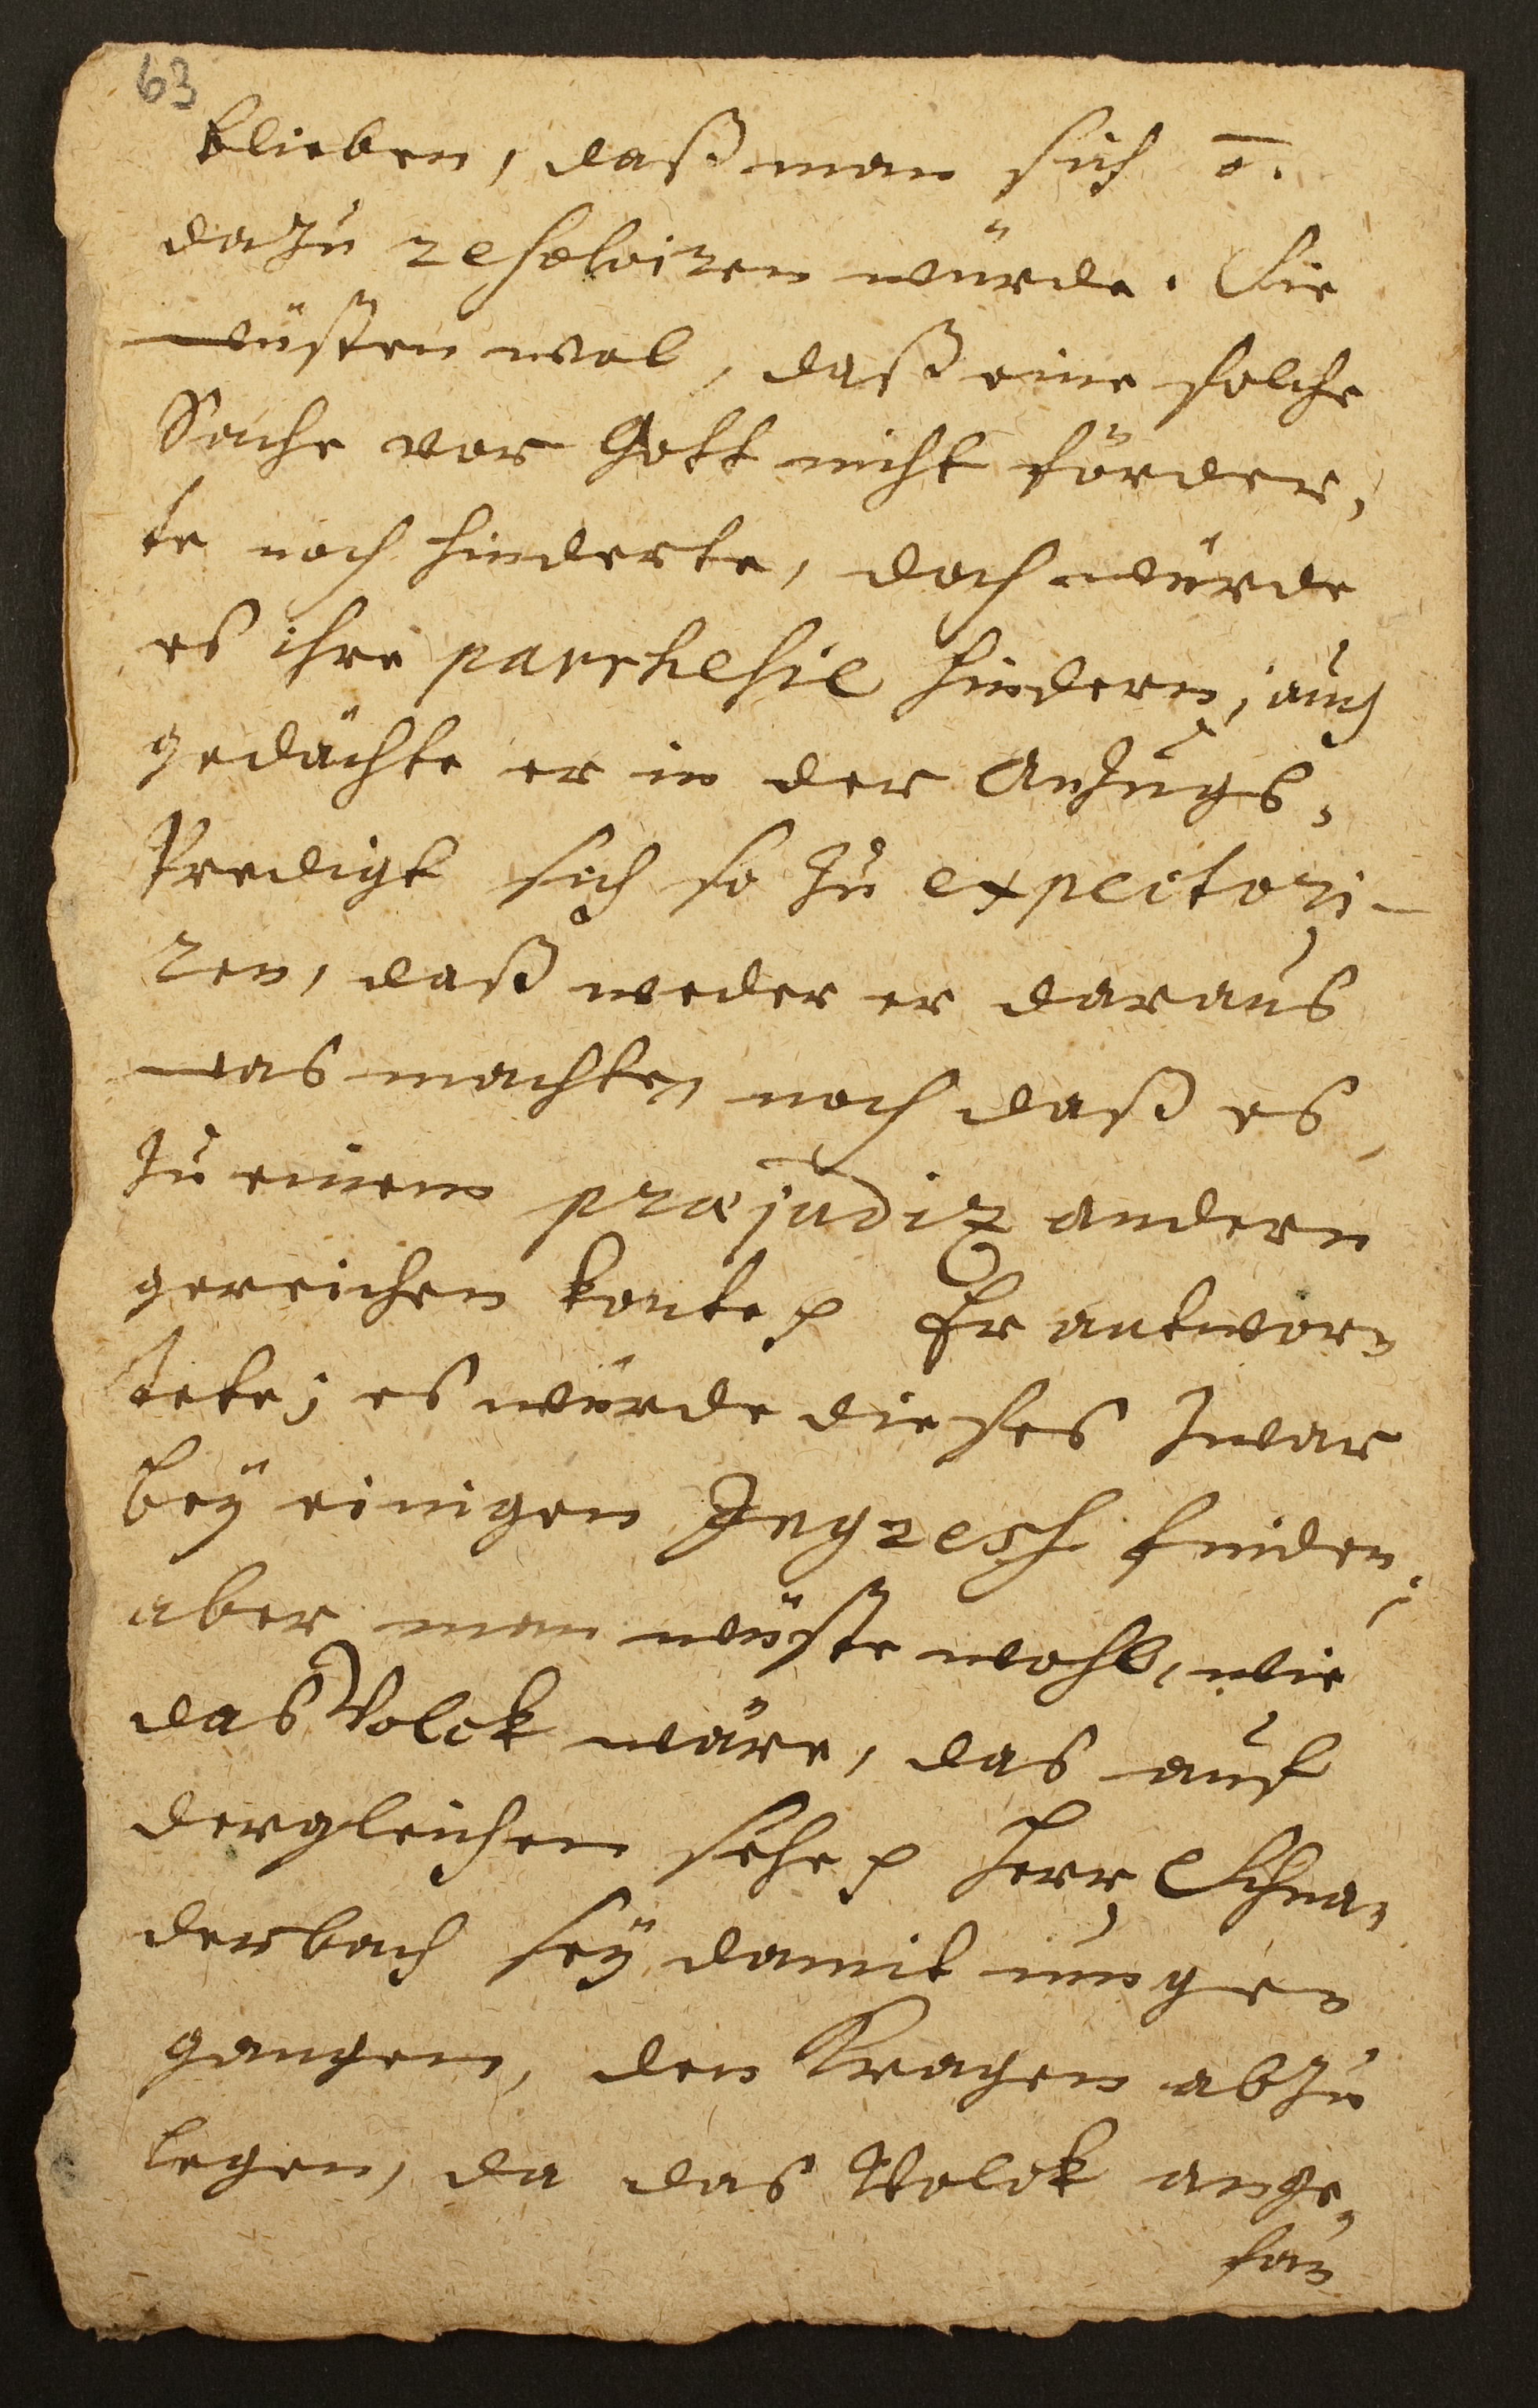 63
blieben, daß man sich ō.
dazu resolviren würde. Sie
wüsten wol, daß eine solche
Sache vor Gott nicht förder,
te noch hinderte, doch würde
es ihre parrhesie hindern; auch
gedächte er in der Anzugs,
Predigt sich so zu expectori-
ren, daß weder er daraus
was machte, noch daß es
zu einem præjudiz andern
gereichen konte. Er antwor,
tete; es würde dieses zwar
bey einigen Ingress finden;
aber man wüste wohl, wie
das Volck wäre, das auf
dergleichen sehe. Herr Schna,
derbach sey damit umge,
gangen, den Kragen abzu
legen, da das Volck ange,
fan